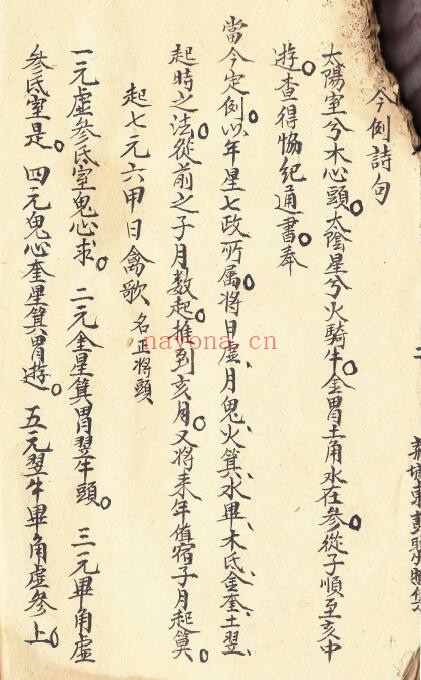 今例詩句
太陽室兮木心頭太陰星兮火騎牛金胃土角水在參從子順至亥中
遊。查得協紀通書奉
當今定例。以年星七政所属將日虛、月鬼、火箕、水畢、木氐、金奎、土翌、
起時之法。從前之子月数起。推到亥月。又將来年值宿子月起算。
起七元六甲日禽歌 名正將頭
一元虛参氐室鬼心求。二元奎星箕胃翌牛頭。三元畢角虛
参氐室是。四元鬼心奎星箕胃遊。五元翌牛畢角虛参上。
nayona.cn